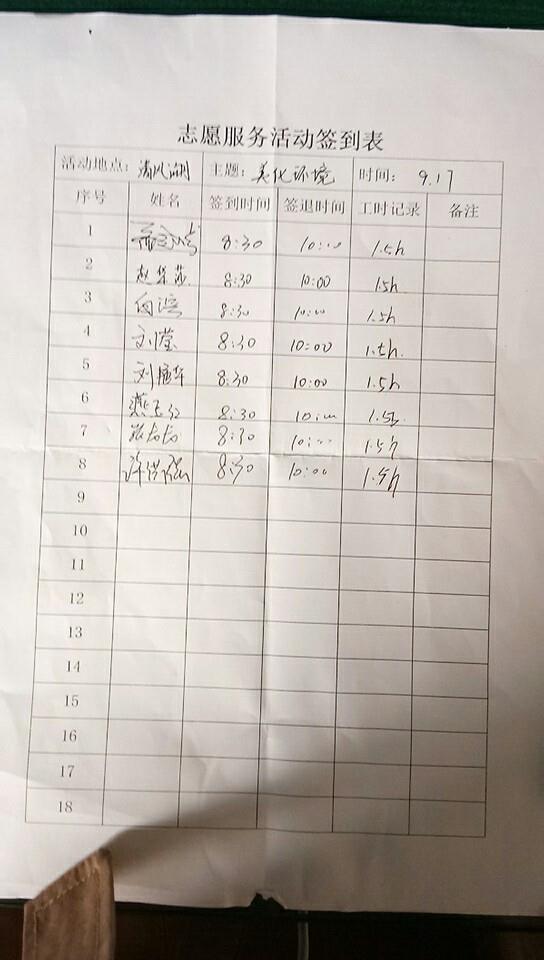 志愿服务活动签到表
活动地点：清风湖 主题：美化环境 时间：9.17
序号 姓名 签到时间 签退时间 工时记录 备注
1 8:30 10:00 1.5h
2 赵华莎 8:30 10:00 1.5h
3 向滨 8:30 10:00 1.5h
4 刘莹 8:30 10:00 1.5h
5 刘 华 8:30 10:00 1.5h
6 燕玉红 8:30 10:00 1.5h
7 8:30 10:00 1.5h
8 许洪强 8:30 10:00 1.5h
9
10
11
12
13
14
15
16
17
18